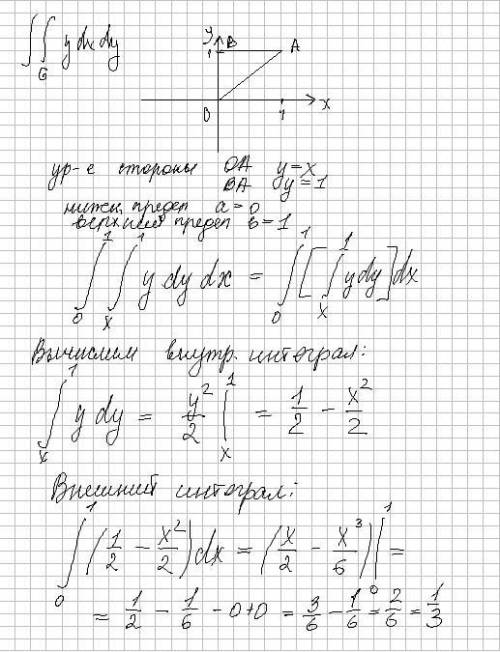 ∫∫_G y dx dy
y B A
1
0 1 x
ур-е стороны OA y=x
BA y=1
нижн. предел a=0
верхний предел b=1
∫_0^1 ∫_x^1 y dy dx = ∫_0^1 [∫_x^1 y dy] dx
Вычислим внутр. интеграл:
∫_x^1 y dy = y²/2 |_x^1 = 1/2 - x²/2
Внешний интеграл:
∫_0^1 (1/2 - x²/2) dx = (x/2 - x³/6) |_0^1 =
= 1/2 - 1/6 - 0+0 = 3/6 - 1/6 = 2/6 = 1/3